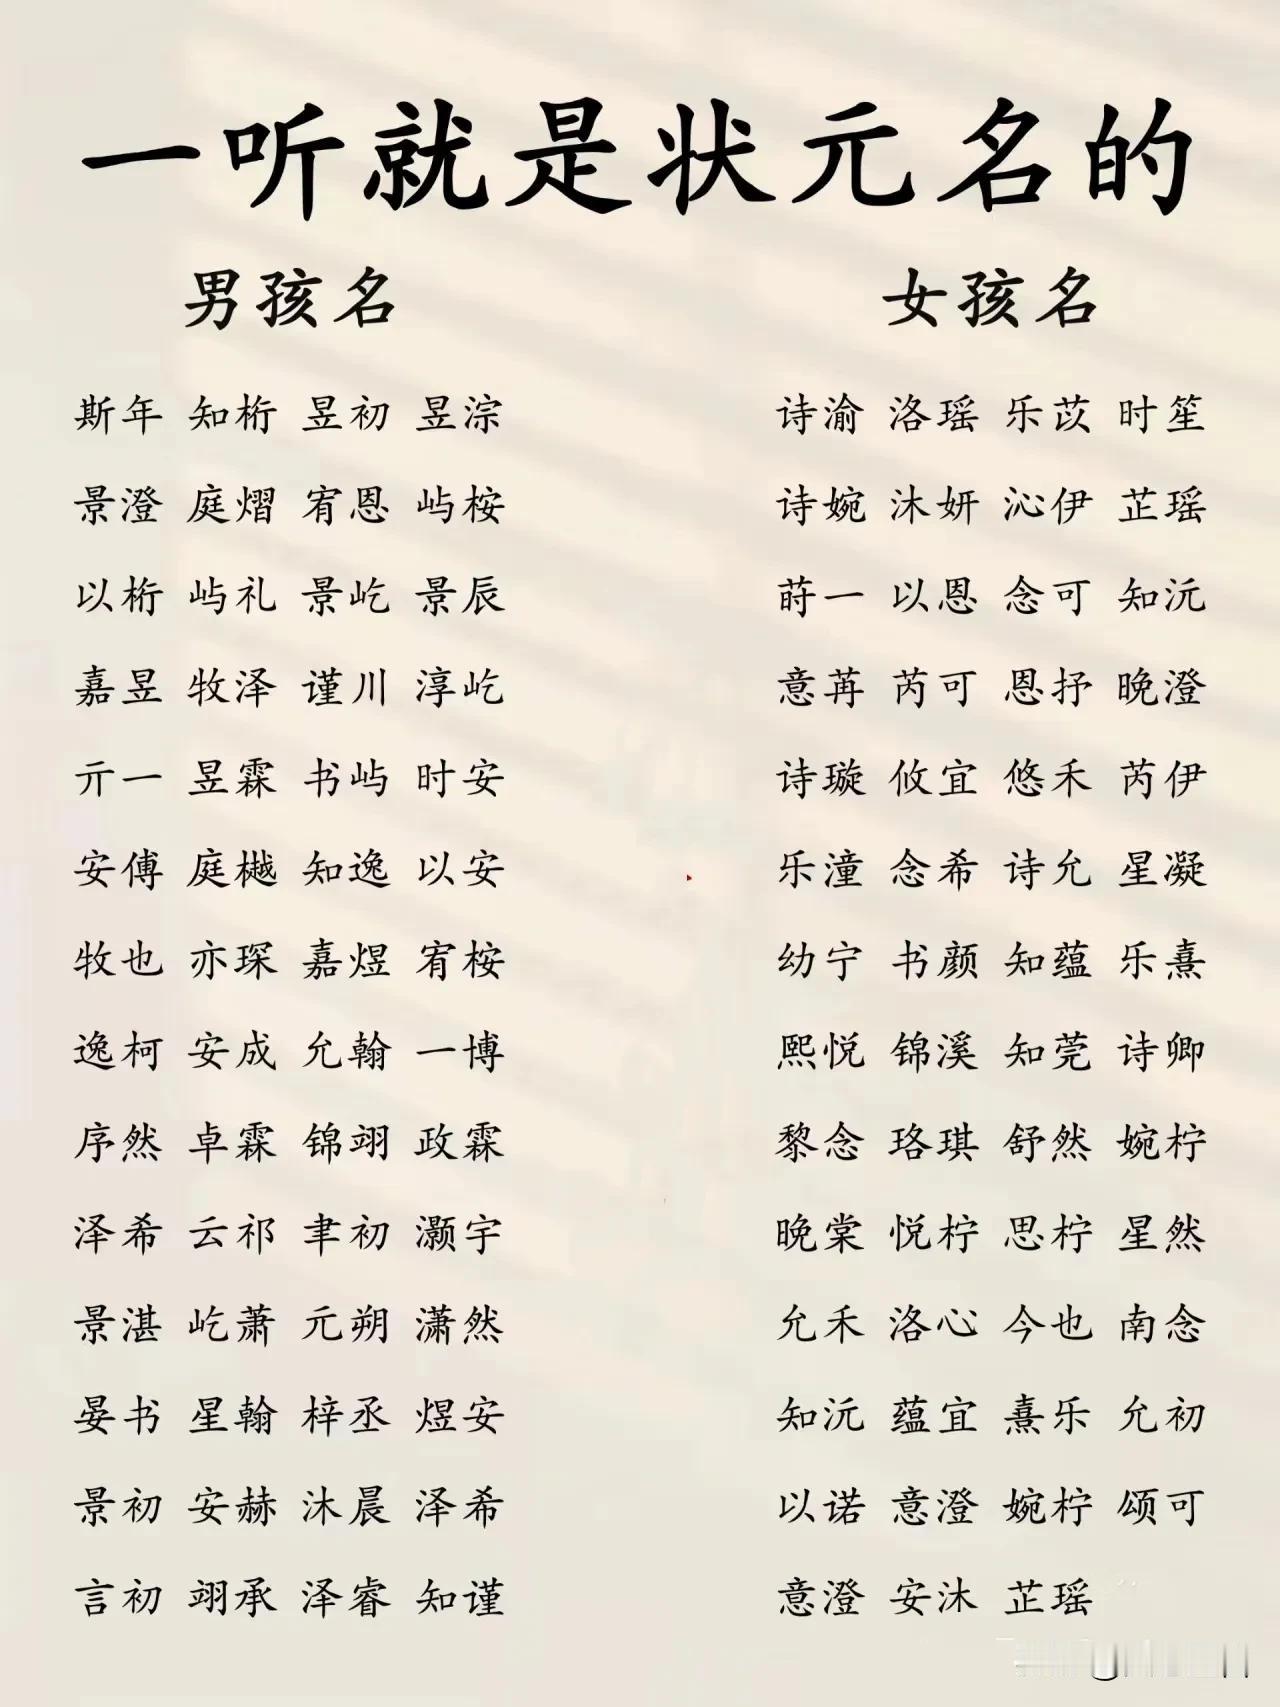 一听就是状元名的
男孩名 女孩名
斯年 知桁 昱初 昱淙 诗渝 洛瑶 乐苡 时笙
景澄 庭熠 宥恩 屿桉 诗婉 沐妍 沁伊 芷瑶
以桁 屿礼 景屹 景辰 莳一 以恩 念可 知沅
嘉昱 牧泽 谨川 淳屹 意苒 芮可 恩抒 晚澄
亓一 昱霖 书屿 时安 诗璇 攸宜 悠禾 芮伊
安傅 庭樾 知逸 以安 乐潼 念希 诗允 星凝
牧也 亦琛 嘉煜 宥桉 幼宁 书颜 知蕴 乐熹
逸柯 安成 允翰 一博 熙悦 锦溪 知莞 诗卿
序然 卓霖 锦翊 政霖 黎念 珞琪 舒然 婉柠
泽希 云祁 聿初 灏宇 晚棠 悦柠 思柠 星然
景湛 屹萧 元朔 潇然 允禾 洛心 今也 南念
晏书 星翰 梓丞 煜安 知沅 蕴宜 熹乐 允初
景初 安赫 沐晨 泽希 以诺 意澄 婉柠 颂可
言初 翊承 泽睿 知谨 意澄 安沐 芷瑶